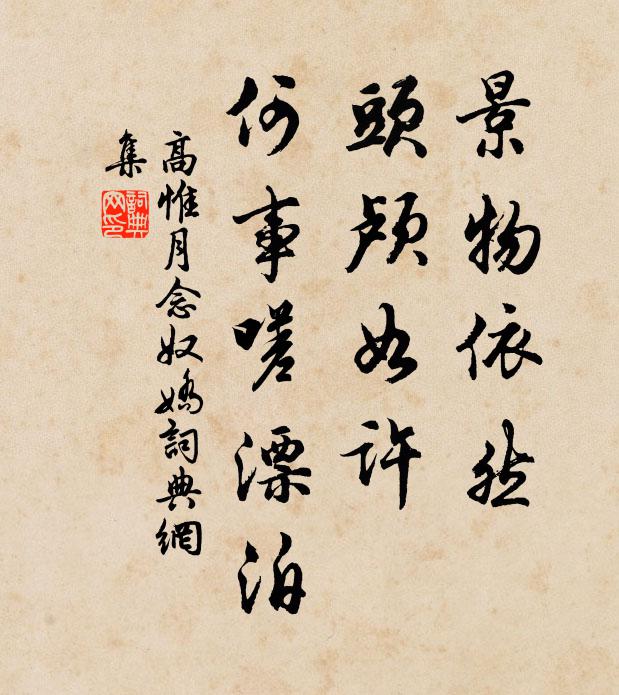 景物依然
頭顱如許
何事嗟漂泊
高惟月念奴嬌詞典網
集
詞典
网印